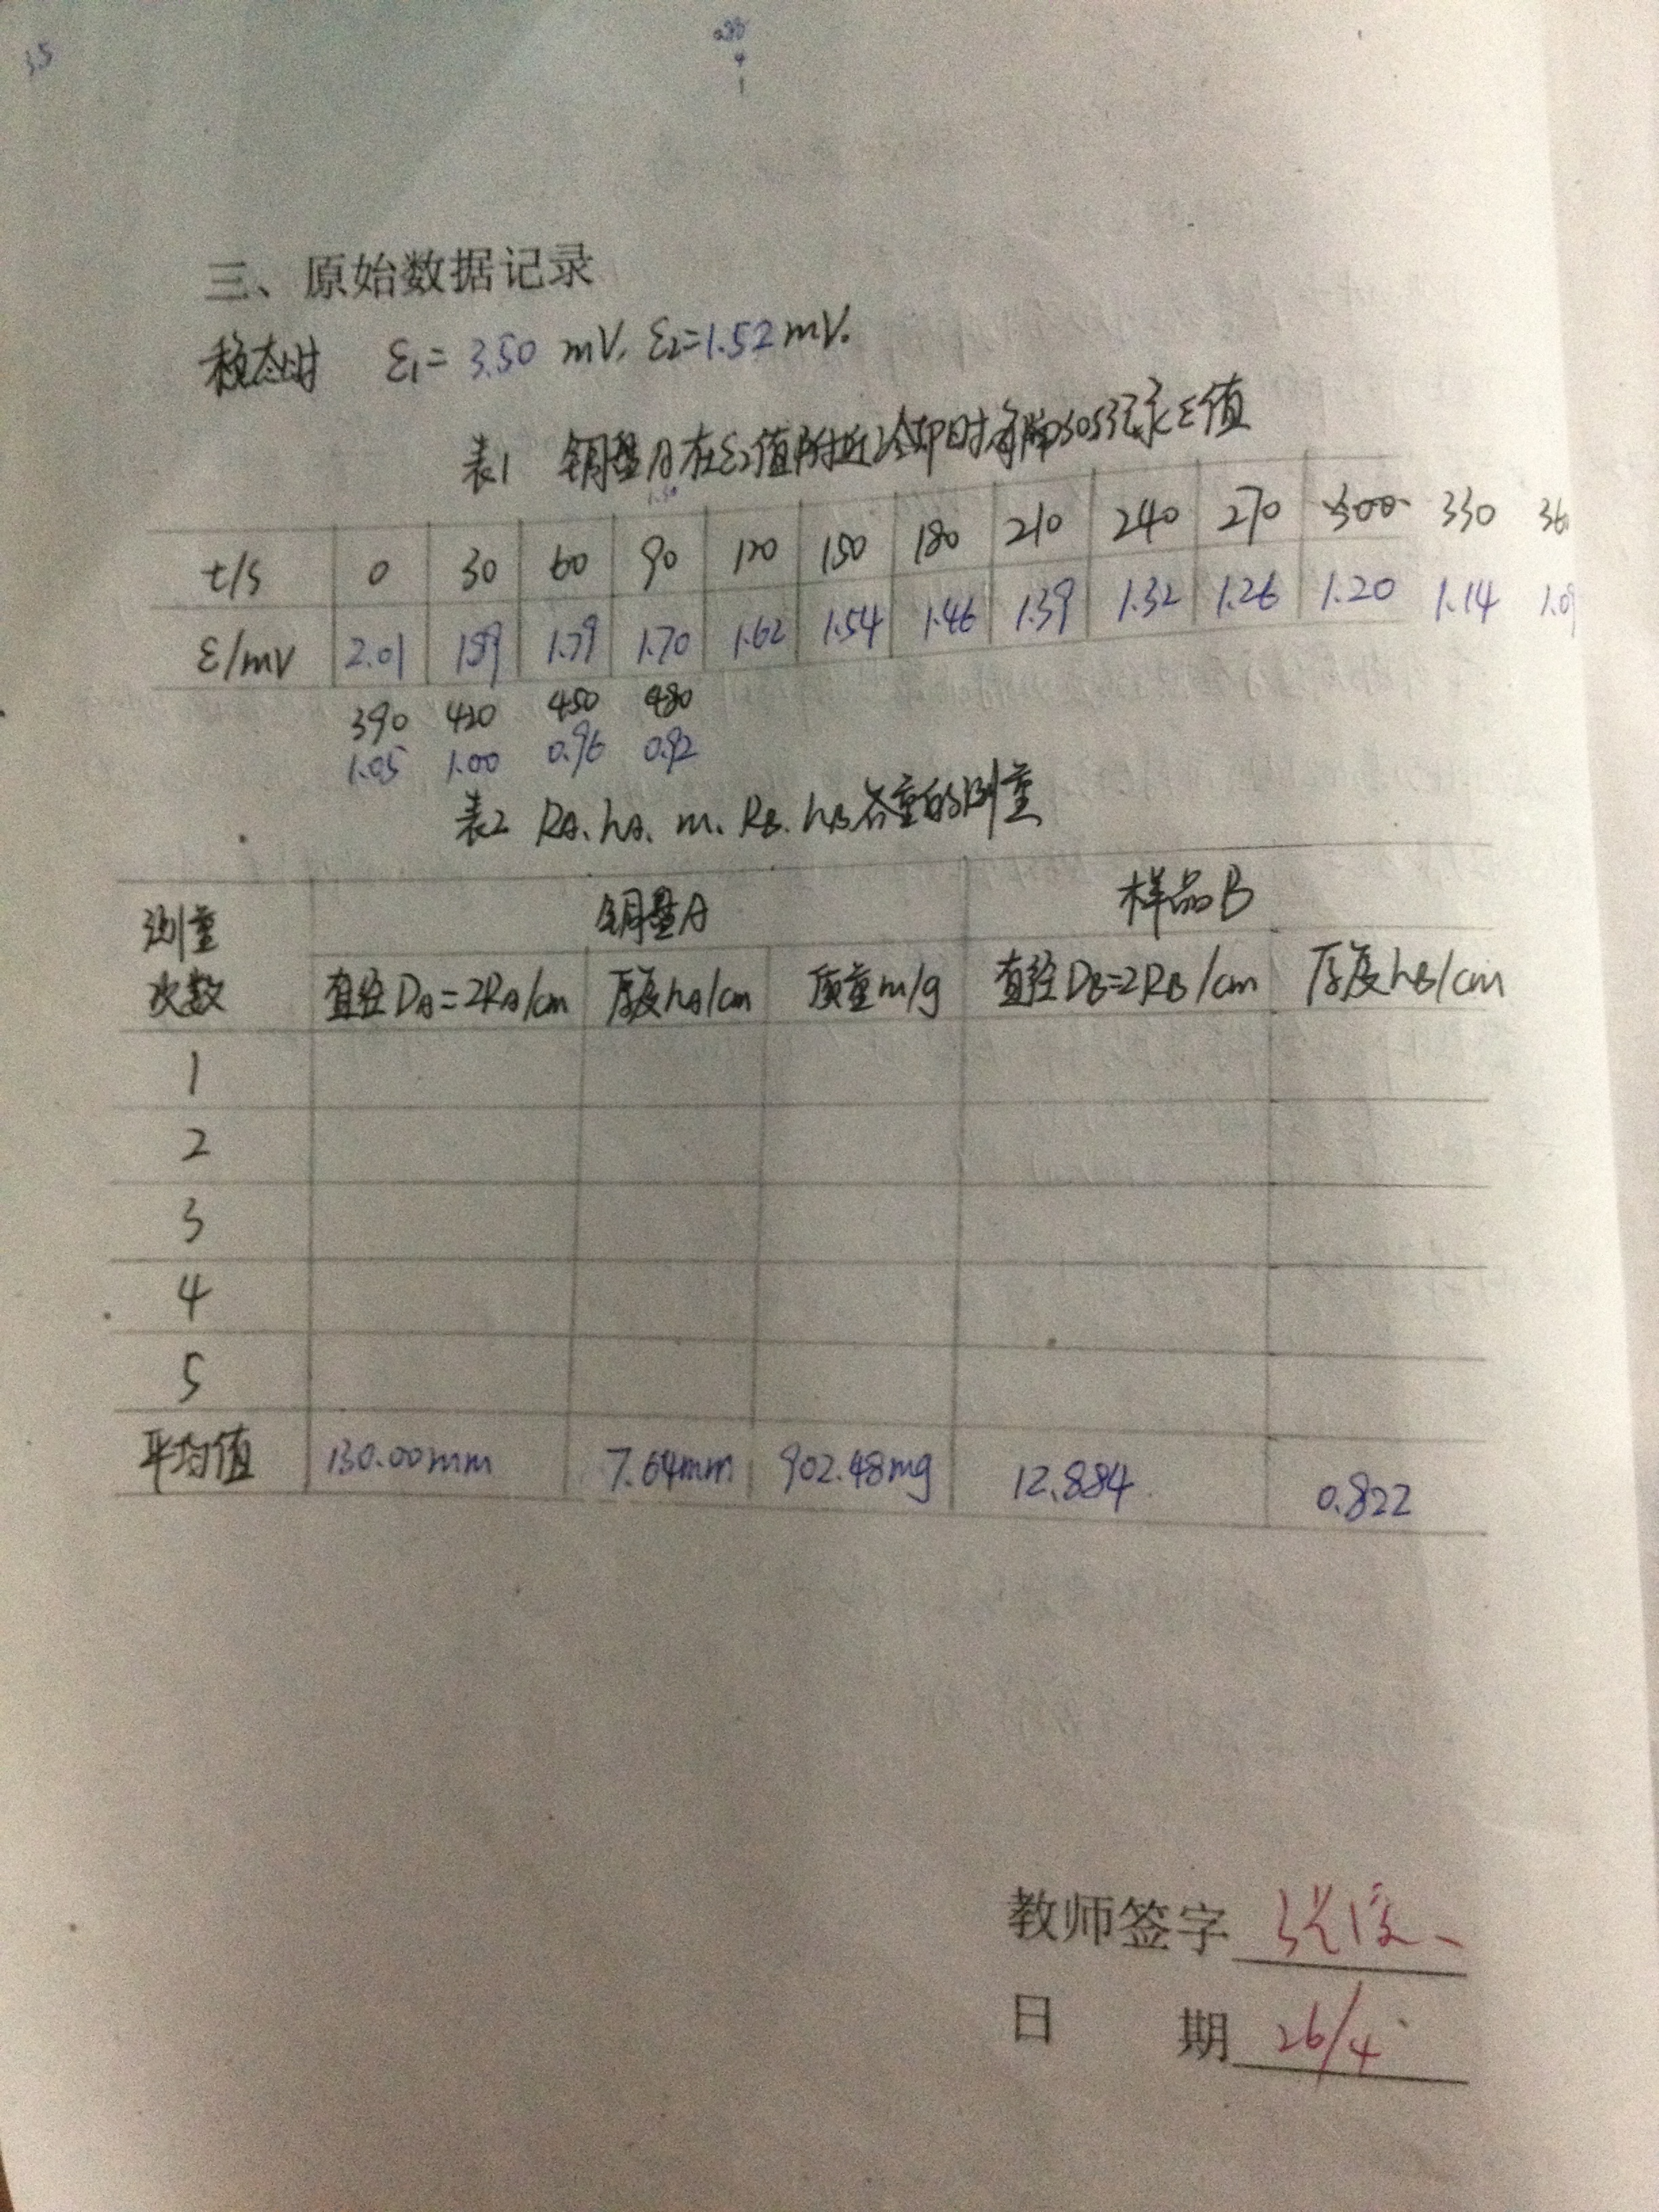 35
三、原始数据记录
稳态时 ε1= 3.50 mV, ε2=1.52mV.
表1 铜盘A在ε2值附近冷却时每隔30s记录ε值
t/s 0 30 60 90 120 150 180 210 240 270 300 330 36
ε/mV 2.01 1.89 1.79 1.70 1.62 1.54 1.46 1.39 1.32 1.26 1.20 1.14 1.09
390 420 450 480
1.05 1.00 0.96 0.92
表2 RA、hA、m、RB、hB各量的测量
测量次数 铜盘A 样品B
直径DA=2RA/cm 厚度hA/cm 质量m/g 直径DB=2RB/cm 厚度hB/cm
1
2
3
4
5
平均值 130.00mm 7.64mm 902.48mg 12.884 0.822
教师签字
日 期 26/4